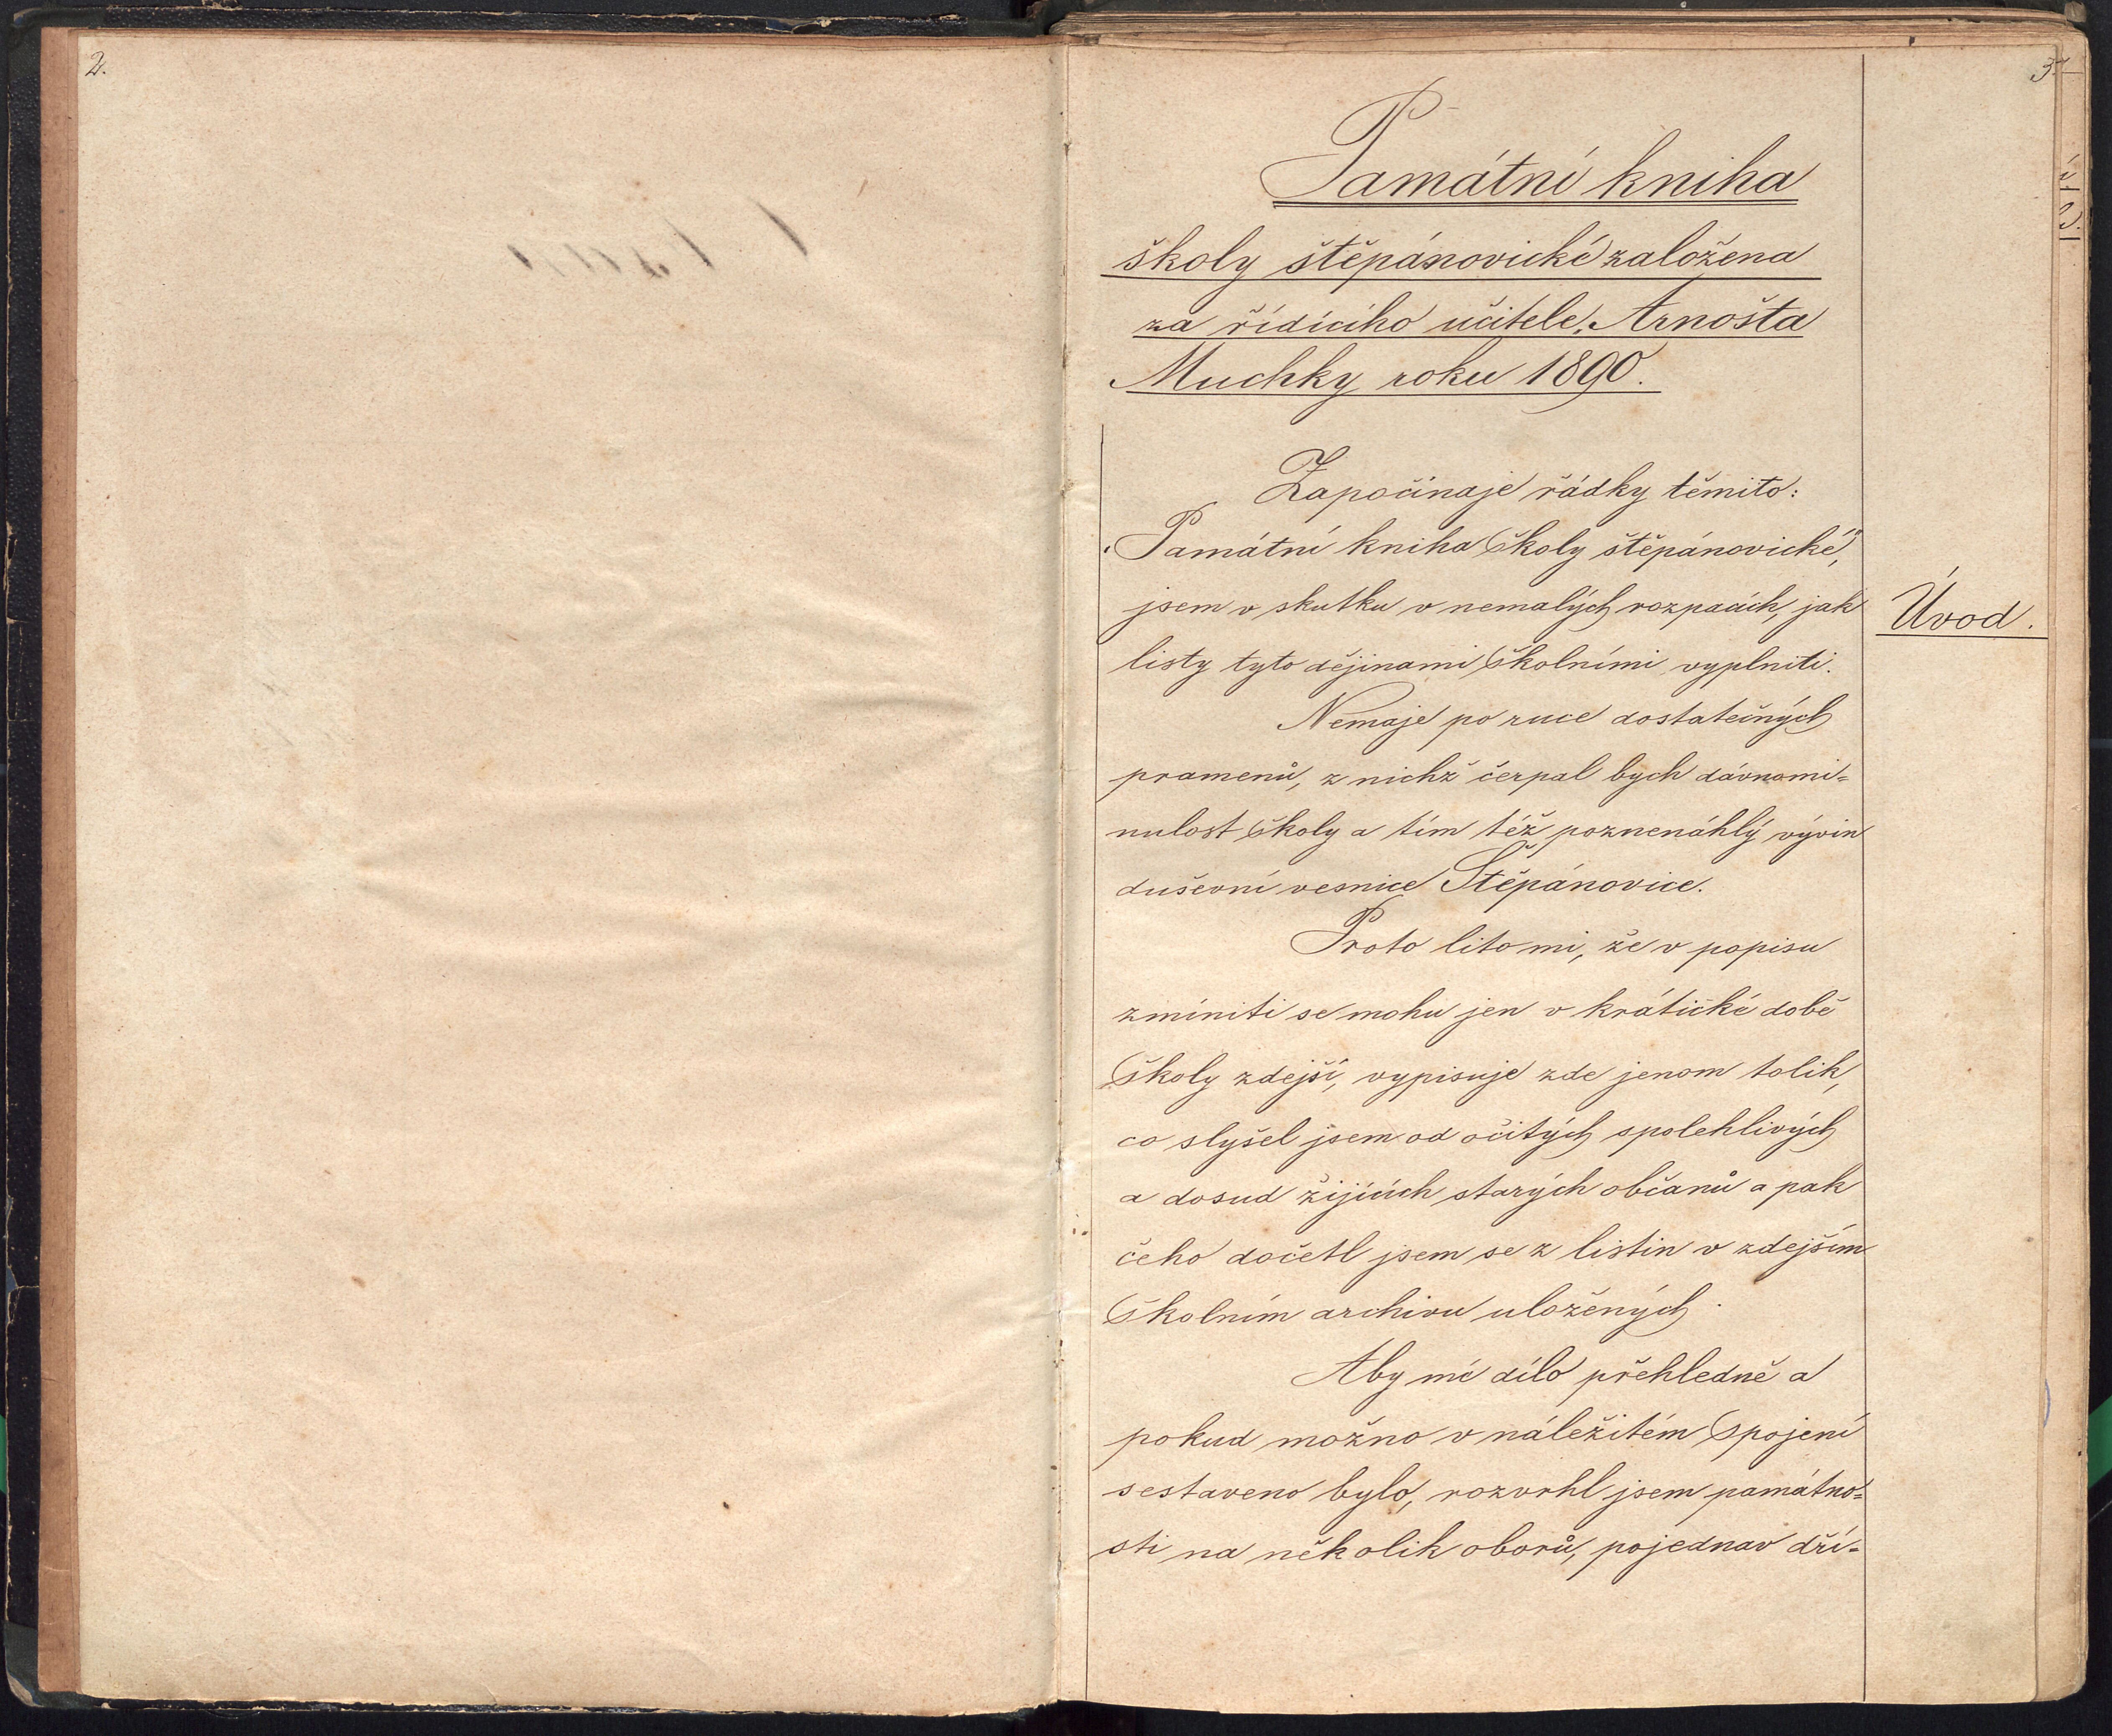 2.
3.
Památní kniha
školy štěpánovické založena
za řídícího učitele Arnošta
Muchky roku 1890.
Započínaje řádky těmito:
„Památní kniha školy štěpánovické“,
jsem v skutku v nemalých rozpacích, jak
Úvod.
listy tyto dějinami školními vyplniti.
Nemaje po ruce dostatečných
pramenů, z nichž čerpal bych dávnomi=
nulost školy a tím též poznenáhlý vývin
duševní vesnice Štěpánovice.
Proto líto mi, že v popisu
zmíniti se mohu jen v krátičké době
školy zdejší, vypisuje zde jenom tolik,
co slyšel jsem od očitých spolehlivých
a dosud žijících starých občanů a pak
čeho dočetl jsem se z listin v zdejším
školním archivu uložených.
Aby mé dílo přehledně a
pokud možno v náležitém spojení
sestaveno bylo, rozvrhl jsem památno=
sti na několik oborů, pojednav dří=